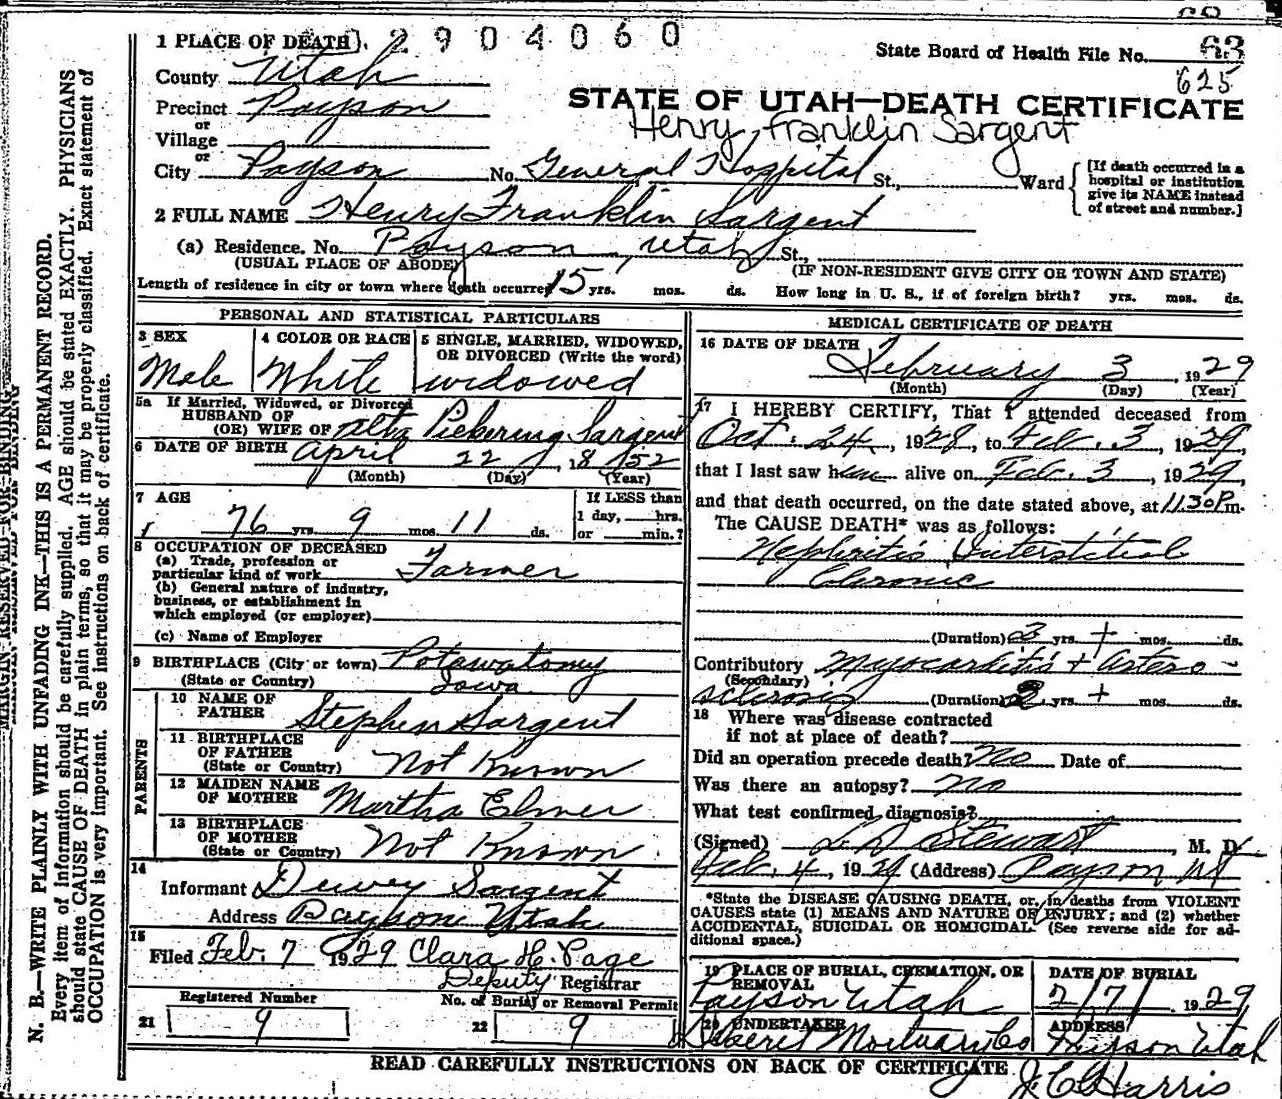 1 PLACE OF DEATH. 2904060
State Board of Health File No. 63
625
County Utah
Precinct Payson
or
Village
or
City Payson No. General Hospital St., Ward
STATE OF UTAH—DEATH CERTIFICATE
Henry Franklin Sargent
[If death occurred in a
hospital or institution
give its NAME instead
of street and number.]
2 FULL NAME Henry Franklin Sargent
(a) Residence. No. Payson, Utah St.,
(USUAL PLACE OF ABODE) (IF NON-RESIDENT GIVE CITY OR TOWN AND STATE)
Length of residence in city or town where death occurred 15 yrs. mos. ds. How long in U. S., if of foreign birth? yrs. mos. ds.
PERSONAL AND STATISTICAL PARTICULARS
3 SEX
Male
4 COLOR OR RACE
White
5 SINGLE, MARRIED, WIDOWED,
OR DIVORCED (Write the word)
widowed
5a If Married, Widowed, or Divorced
HUSBAND OF
(OR) WIFE OF Alta Pickering Sargent
6 DATE OF BIRTH April 22, 1852
(Month) (Day) (Year)
7 AGE
76 yrs. 9 mos. 11 ds.
If LESS than
1 day, hrs.
or min.?
8 OCCUPATION OF DECEASED
(a) Trade, profession or
particular kind of work Farmer
(b) General nature of industry,
business, or establishment in
which employed (or employer)
(c) Name of Employer
9 BIRTHPLACE (City or town) Potawatomy
(State or Country) Iowa
PARENTS
10 NAME OF
FATHER Stephen Sargent
11 BIRTHPLACE
OF FATHER
(State or Country) Not Known
12 MAIDEN NAME
OF MOTHER Martha Elmer
13 BIRTHPLACE
OF MOTHER
(State or Country) Not Known
14
Informant Dewey Sargent
Address Payson Utah
15
Filed Feb. 7 1929 Clara H. Page
Deputy Registrar
Registered Number
21 9
No. of Burial or Removal Permit
22 9
MEDICAL CERTIFICATE OF DEATH
16 DATE OF DEATH
February 3, 1929
(Month) (Day) (Year)
17 I HEREBY CERTIFY, That I attended deceased from
Oct. 24, 1928, to Feb. 3, 1929,
that I last saw him alive on Feb. 3, 1929,
and that death occurred, on the date stated above, at 11.30 P.m.
The CAUSE DEATH* was as follows:
Nephiritis Interstitial
Chronic
(Duration) 3 yrs. + mos. ds.
Contributory Myocarditis + Artero-
(Secondary)
sclerosis (Duration) yrs. + mos. ds.
18 Where was disease contracted
if not at place of death?
Did an operation precede death? No Date of
Was there an autopsy? No
What test confirmed diagnosis?
(Signed) L D Stewart, M. D.
Feb. 4, 1929 (Address) Payson Ut
*State the DISEASE CAUSING DEATH, or, in deaths from VIOLENT
CAUSES state (1) MEANS AND NATURE OF INJURY; and (2) whether
ACCIDENTAL, SUICIDAL OR HOMICIDAL. (See reverse side for ad-
ditional space.)
19 PLACE OF BURIAL, CREMATION, OR
REMOVAL
Payson Utah
DATE OF BURIAL
2/7/ 1929
20 UNDERTAKER
Deseret Mortuary Co
ADDRESS
Payson Utah
READ CAREFULLY INSTRUCTIONS ON BACK OF CERTIFICATE
J. E. Harris
MARGIN RESERVED FOR BINDING
N. B.—WRITE PLAINLY WITH UNFADING INK—THIS IS A PERMANENT RECORD.
Every item of information should be carefully supplied. AGE should be stated EXACTLY. PHYSICIANS
should state CAUSE OF DEATH in plain terms, so that it may be properly classified. Exact statement of
OCCUPATION is very important. See instructions on back of certificate.